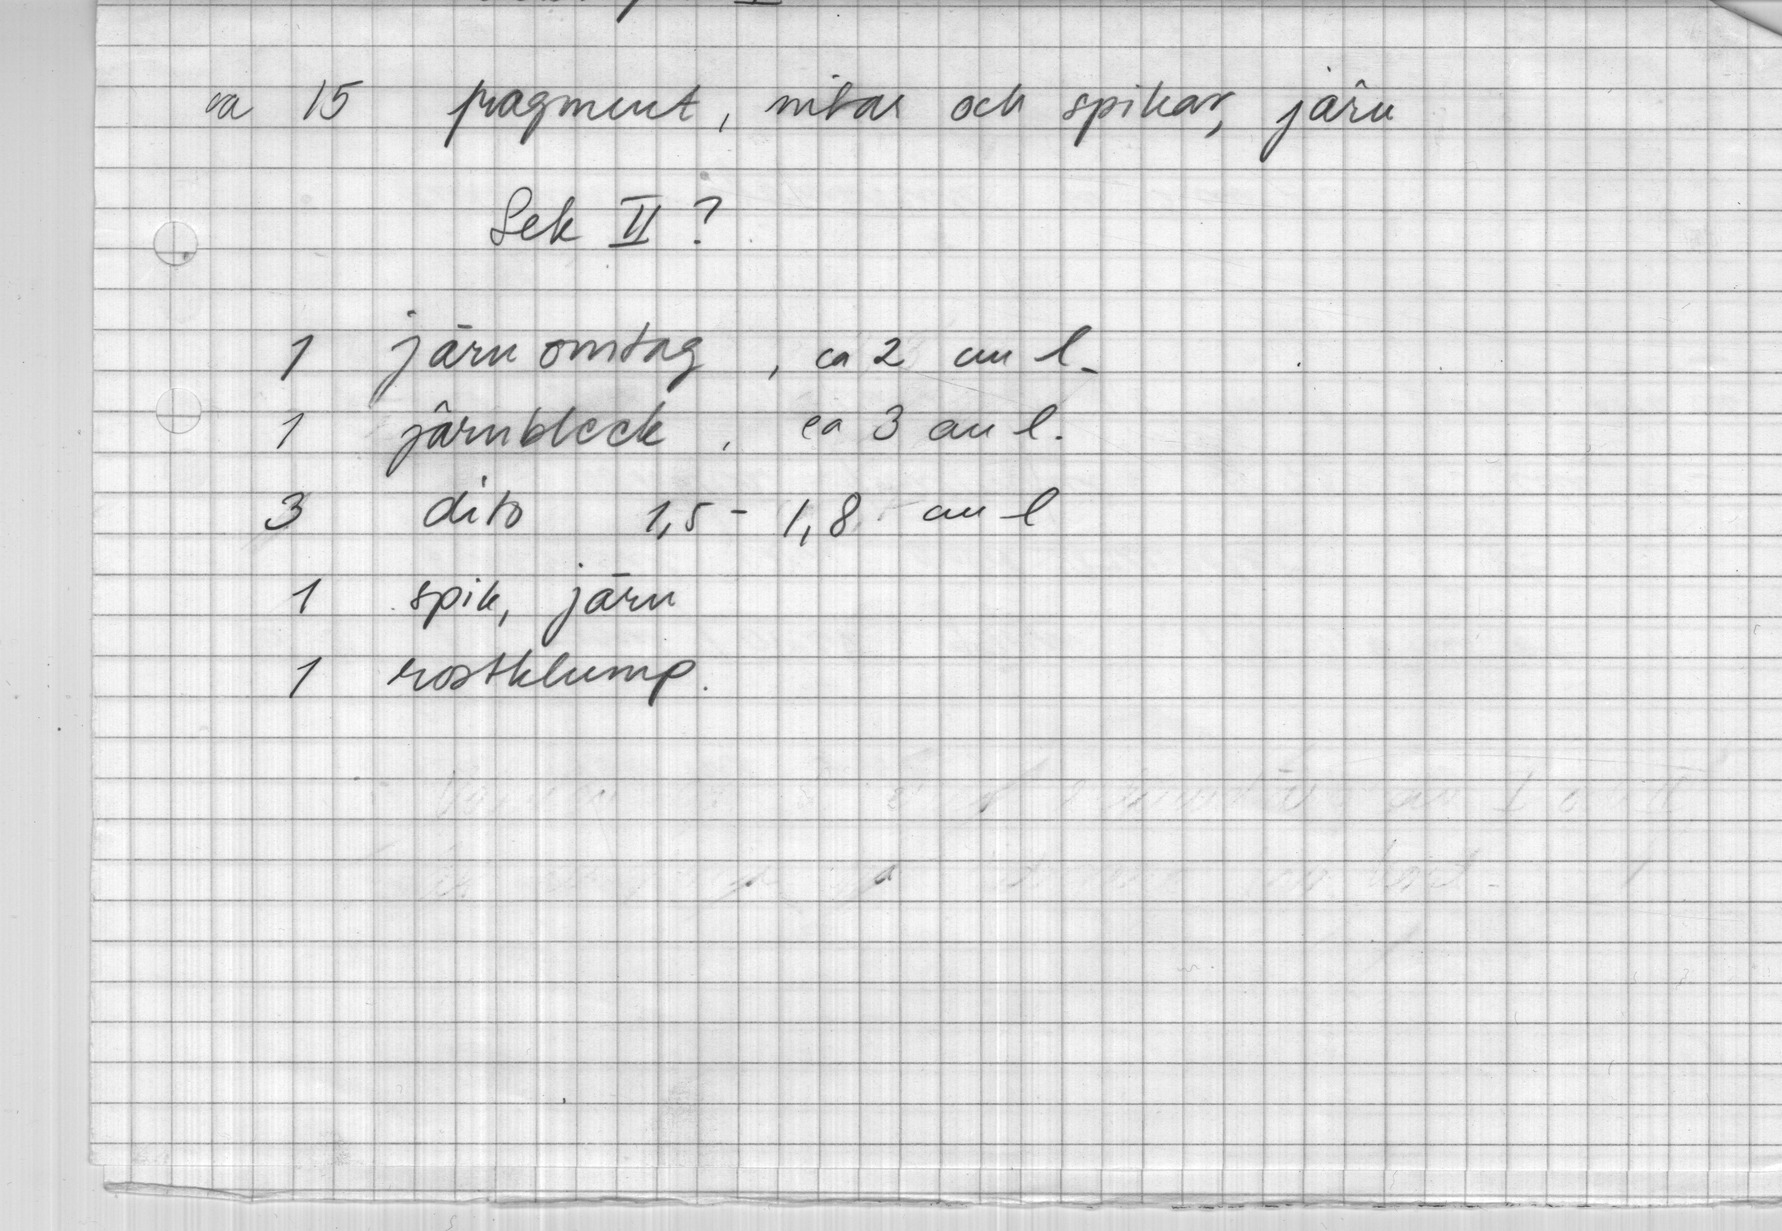 ca 15 fragment, nitar och spikar, järn
Sek II ?
1 järnomtag, ca 2 cm l.
1 järnbleck, ca 3 cm l.
3 dito 1,5 - 1,8 cm l
1 spik, järn
1 rostklump.